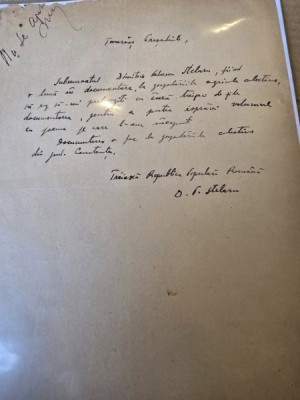 Tovarășe Președinte,
Subsemnatul Dimitrie Stelaru, fiind
o lună în documentare la gospodăriile agricole colective,
vă rog să-mi prelungiți cu încă timpul de
documentare, pentru a putea isprăvi volumul
cu poeme pe care l-am început.
Documentarea o fac la gospodăriile colective
din jud. Constanța.
Trăiască Republica Populară Română
D. Stelaru